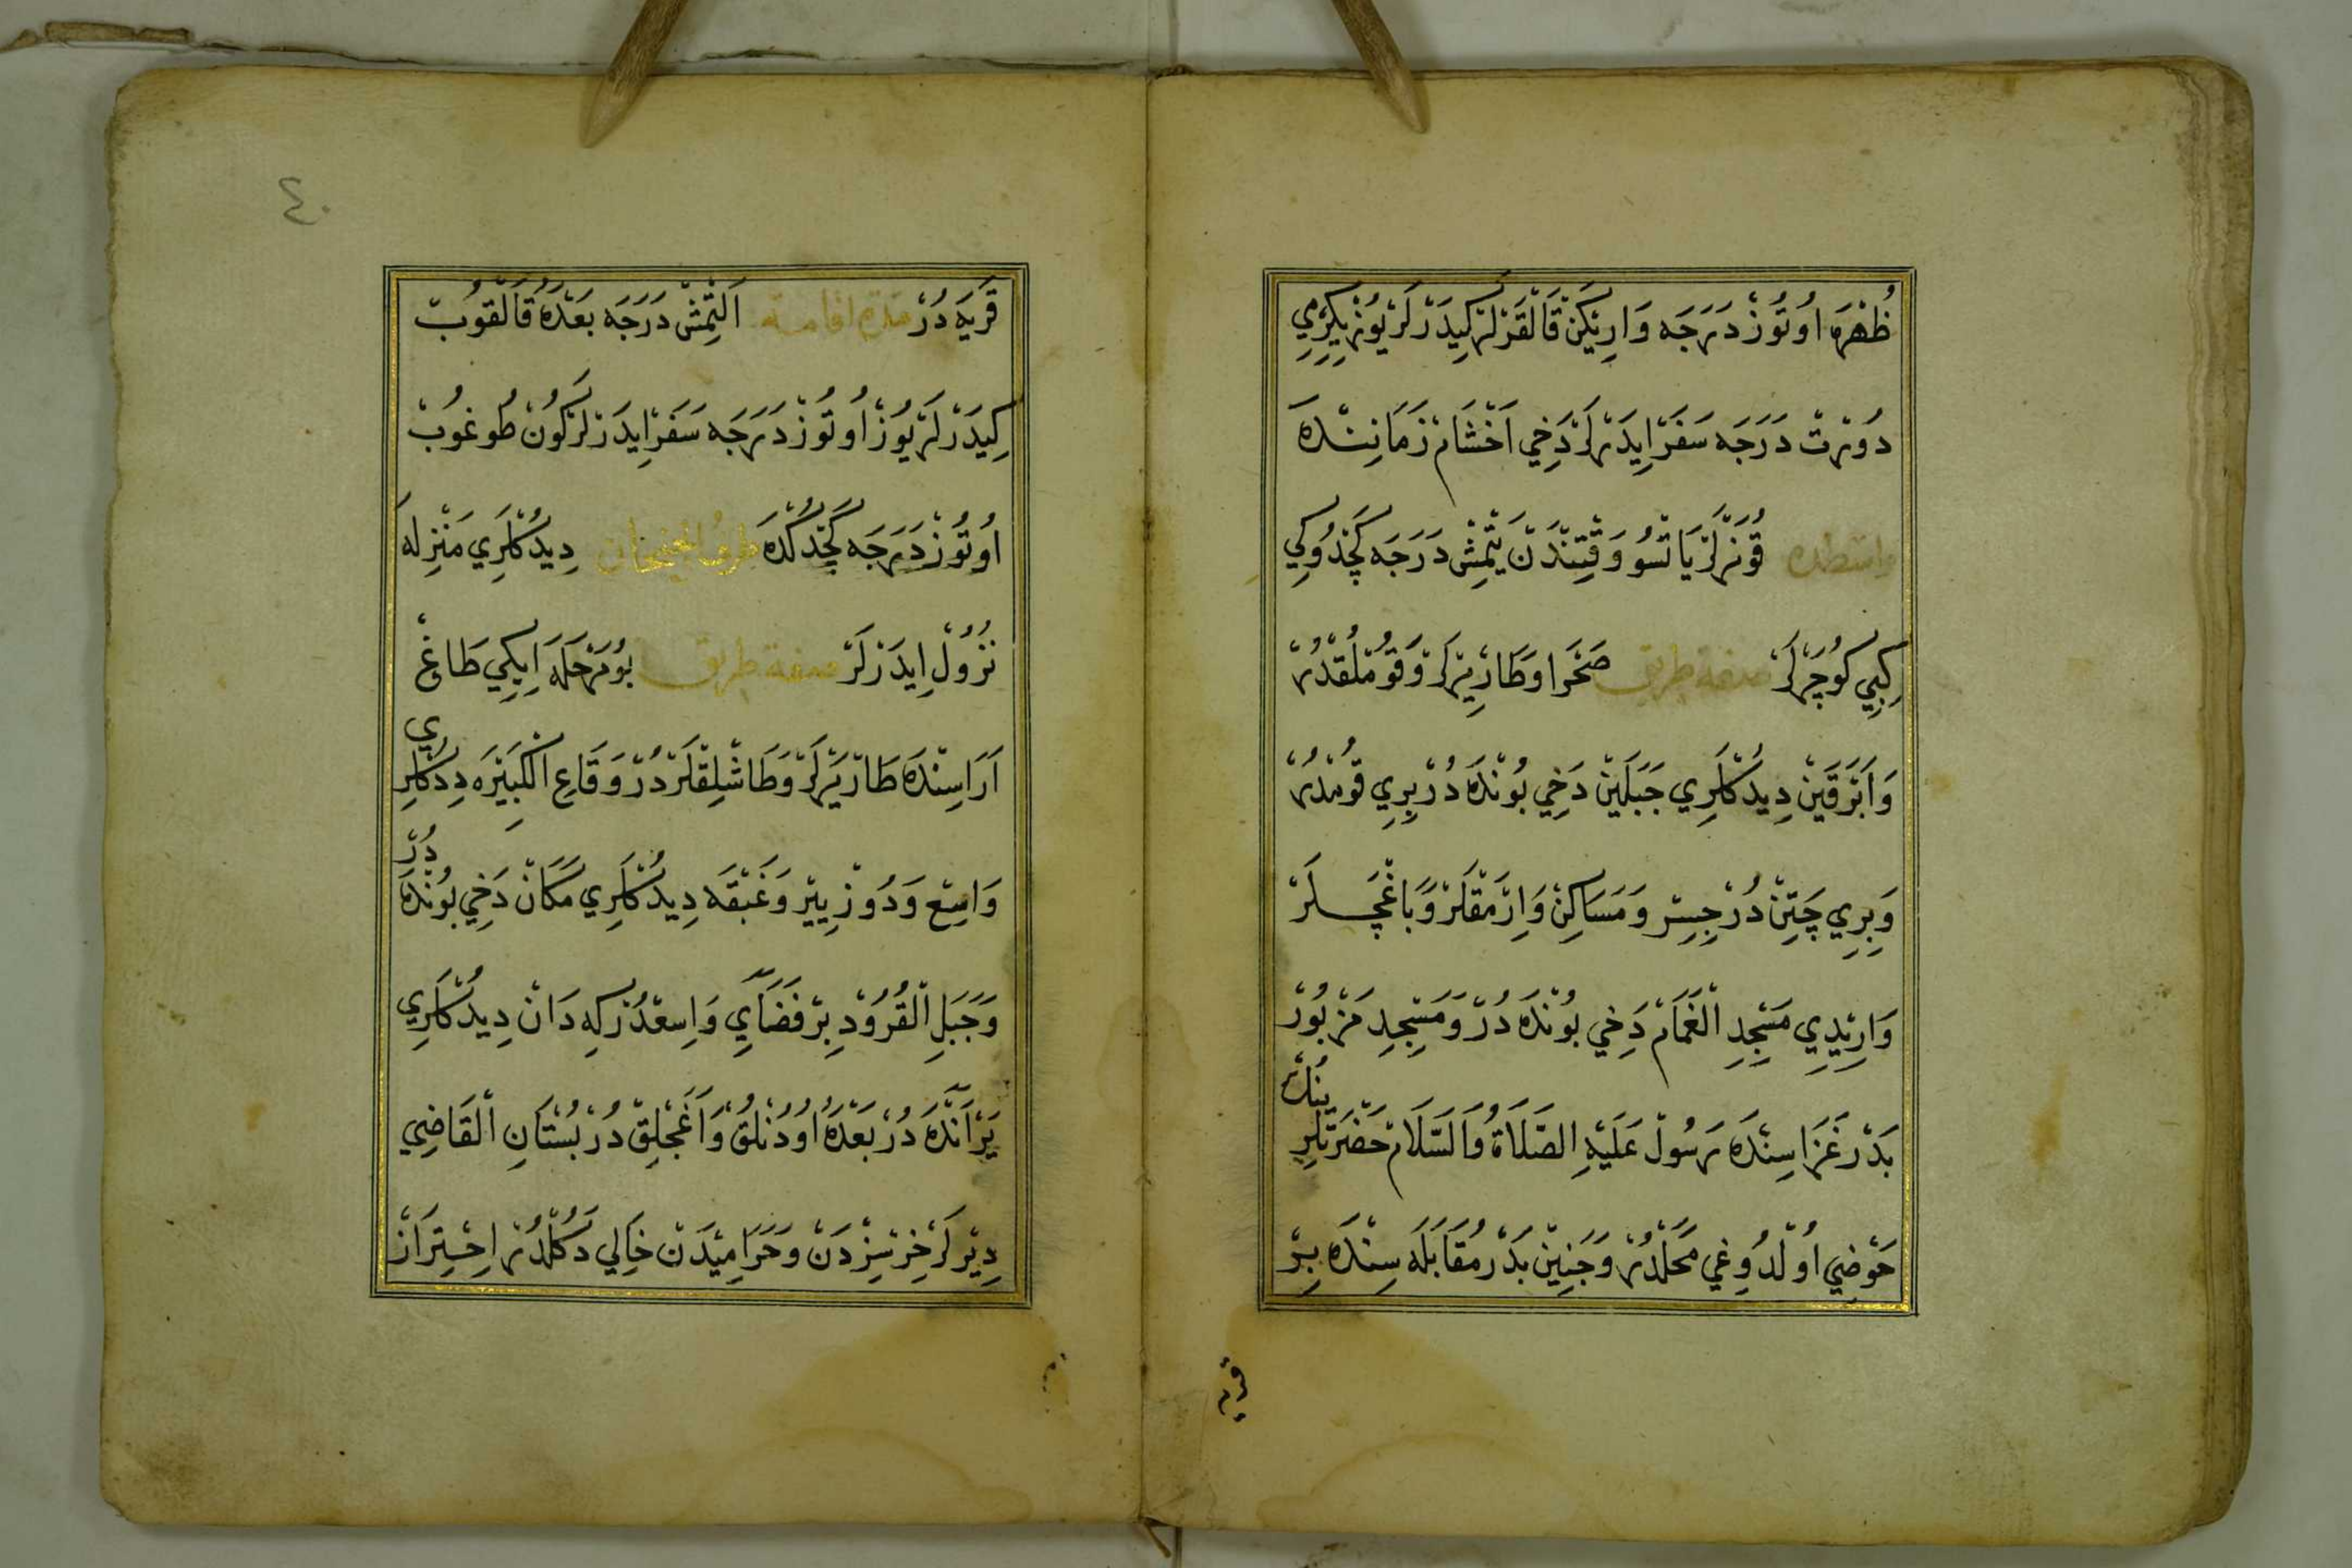 ظُهْرَه اوُتُوزْ دَرَجَه وَارِيكَنْ قَالْقَرْلَرْ كِيدَرْلَرْ يُوزْ يِكِرْمِي
دُورْت دَرَجَه سَفَرْ اِيدَرْلَرْ دَخِي اَخْشَامْ زَمَانِنْدَه
وَاسِطْدَه قُونَرْلَرْ يَاتْسُو وَقْتِنْدَنْ يَتْمِشْ دَرَجَه كَچْدُوكِي
كِبِي كُوچَرْلَرْ صفة طريق صَحْرَا وَطَارْيِرْلَرْ وَقُومْلُقْدُرْ
وَاَبْرَقَيْنْ دِيدُكْلَرِي جَبَلَيْنْ دَخِي بُونْدَه دُرْ بِرِي قُومْدُرْ
وَبِرِي چَتِنْ دُرْ جِسِرْ وَمَسَاكِنْ وَاِرْمَقْلَرْ وَبَاغْچَه لَرْ
وَارِيْدِي مَسْجِدِ الْغَمَامْ دَخِي بُونْدَه دُرْ وَمَسْجِدِ مَزْبُورْ
بَدْرْ غَزَاسِنْدَه رَسُولْ عَلَيْهِ الصَّلَاةُ وَالسَّلَامْ حَضْرَتْلَرِينُكْ
حَوْضِي اُولْدُوغِي مَحَلْدُرْ وَجَنِينْ بَدْرْ مُقَابَلَه سِنْدَه بِرْ
قريه
٤٠
قَرْيَه دُرْ مدة اقامة اَلْتْمِشْ دَرَجَه بَعْدَهُ قَالْقُوبْ
كِيدَرْلَرْ يُوزْ اُوتُوزْ دَرَجَه سَفَرْ اِيدَرْلَرْ كُونْ طُوغُوبْ
اُوتُوزْ دَرَجَه كَچْدُكْدَه طرف دِيدُكْلَرِي مَنْزِلَه
نُزُولْ اِيدَرْلَرْ صفة طريق بُومَرْحَلَه اِيكِي طَاغْ
اَرَاسِنْدَه طَارْيِرْلَرْ وَطَاشْلِقْلَرْدُرْ وَقَاعِ الْكَبِيْرَه دِدُكْلَرِي
وَاسِعْ وَدُوزْ يِيرْ وَعَنْبَقَه دِيدُكْلَرِي مَكَانْ دَخِي بُونْدَه دُرْ
وَجَبَلِ الْقُرُودِ بِرْ فَضَايِ وَاسِعْدُرْكِه دَانْ دِيدُكْلَرِي
يِرْ اَنْدَه دُرْ بَعْدَهُ اُودُنْلُقْ وَاَغَجْلِقْ دُرْ بُسْتَانِ الْقَاضِي
دِيرْلَرْ خِرْسِزْدَنْ وَحَرَامِيْدَنْ خَالِي دَكُلْدُرْ اِحْتِرَازْ